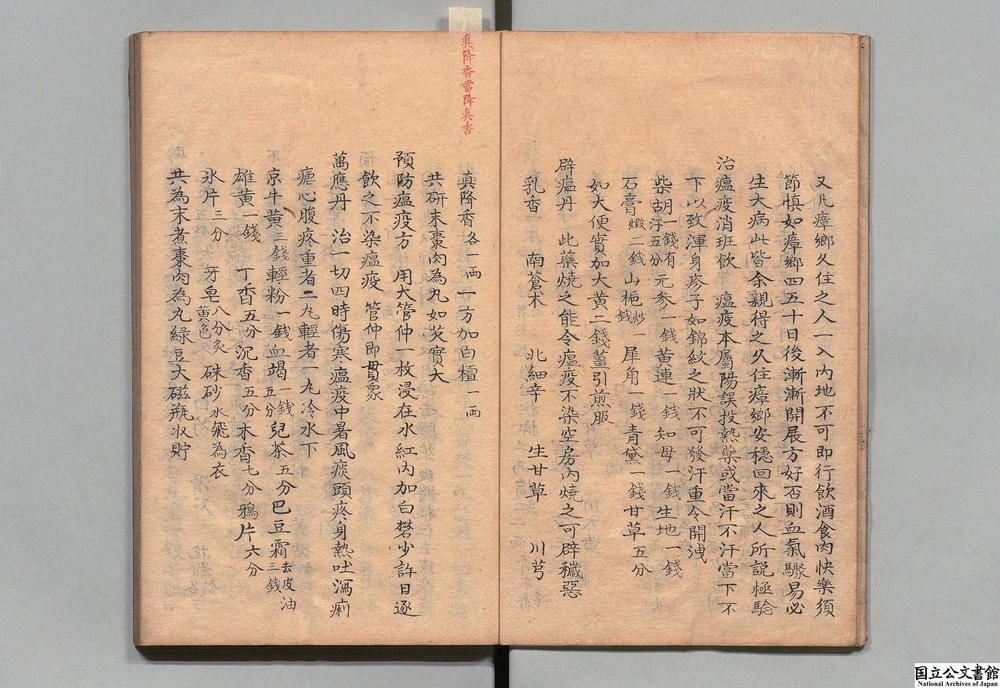 又凡瘴鄉久住之人一入內地不可即行飲酒食肉快樂須
節慎如瘴鄉四五十日後漸漸開展方好否則血氣驟易必
生大病此皆余親得之久住瘴鄉安穩回來之人所說極驗
治瘟疫消班飲　瘟疫本屬陽誤投熱藥或當汗不汗當下不
下以致渾身疹子如錦紋之狀不可發汗重令開洩
柴胡一錢有汗五分　元參一錢　黃連一錢　知母一錢　生地一錢
石膏煅二錢　山梔炒錢　犀角一錢　青黛一錢　甘草五分
如大便實加大黃二錢薑引煎服
辟瘟丹　此藥燒之能令瘟疫不染空房內燒之可辟穢惡
乳香　南蒼术　北細辛　生甘草　川芎
真降香當降真香
真降香各一両一方加白檀一両
共研末棗肉為丸如芡實大
預防瘟疫方　用大管仲一枚浸在水缸內加白礬少許日逐
飲之不染瘟疫　管仲即貫衆
萬應丹　治一切四時傷寒瘟疫中暑風痰頭疼身熱吐瀉痢
瘧心腹疼重者二丸輕者一丸冷水下
京牛黃三錢　輕粉一錢　血竭一錢五分　兒茶五分　巴豆霜去皮油三錢
雄黃一錢　丁香五分　沉香五分　木香七分　鴉片六分
氷片三分　牙皂八分炙黃色　硃砂水飛為衣
共為末煮棗肉為丸綠豆大磁瓶收貯
国立公文書館
National Archives of Japan